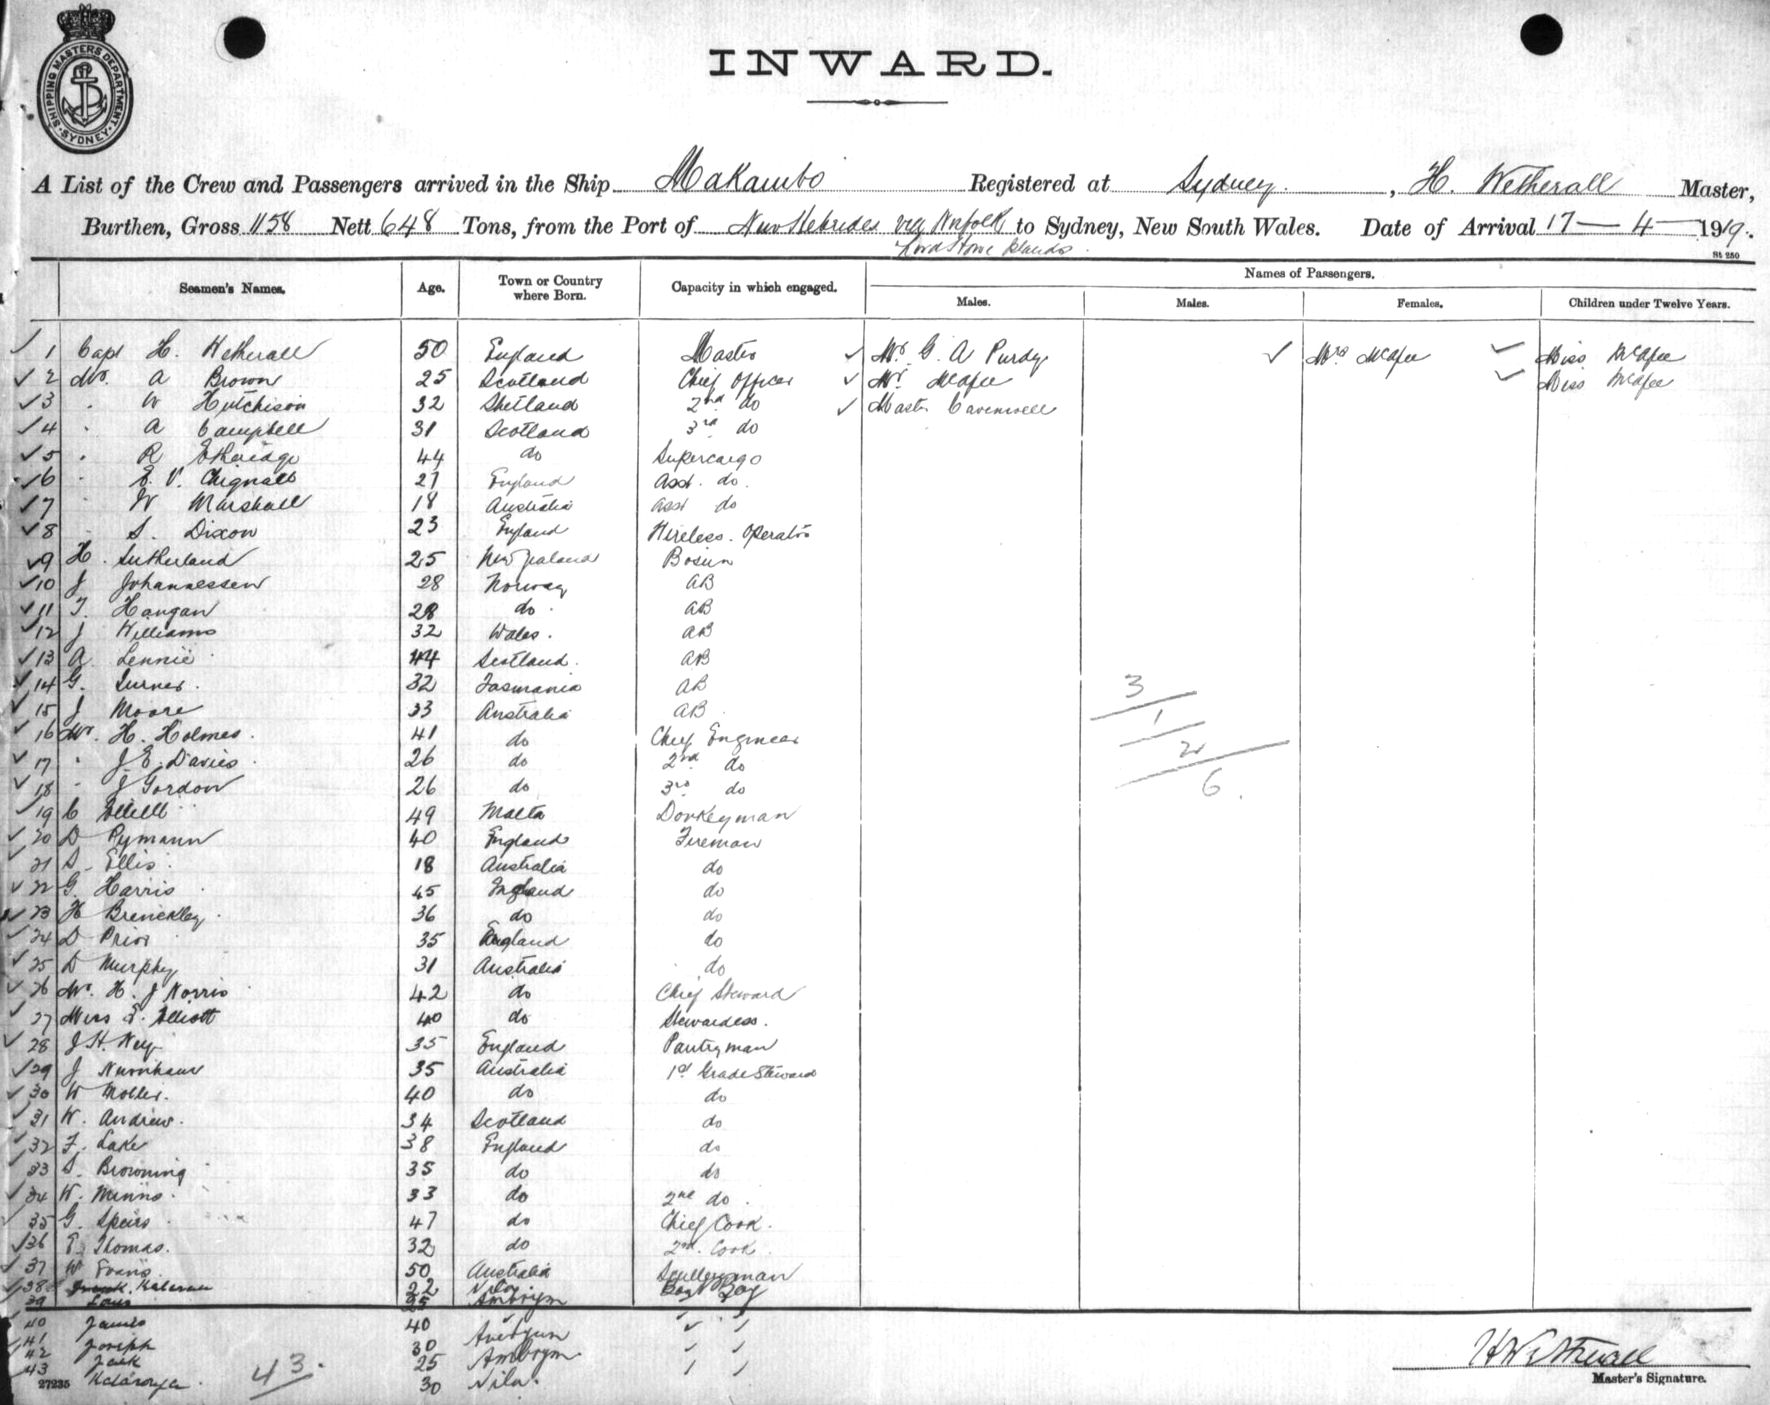 SHIPPING MASTERS DEPARTMENT
SYDNEY
INWARD.
A List of the Crew and Passengers arrived in the Ship Makambo Registered at Sydney, H. Wetherall Master,
Burthen, Gross 1158 Nett 648 Tons, from the Port of New Hebrides via Norfolk to Sydney, New South Wales. Date of Arrival 17-4-1919.
Lord Howe Islands.
St 250
Names of Passengers.
Seamen's Names. Age. Town or Country where Born. Capacity in which engaged. Males. Males. Females. Children under Twelve Years.
1 Capt H. Wetherall 50 England Master Mr G. A Purdy Mrs McAfee Miss McAfee
2 Mr. A Brown 25 Scotland Chief Officer Mr McAfee Miss McAfee
3 " W Hutchison 32 Shetland 2nd do Master
4 " A Campbell 31 Scotland 3rd do
5 " R Etheridge 44 do Supercargo
6 " E. V. Chignall 27 England Asst. do.
7 " W Marshall 18 Australia Asst do
8 " S. Dixon 23 England Wireless. Operator
9 H. Sutherland 25 New Zealand Bosun
10 J Johannessen 28 Norway AB
11 T. Haugan 28 do. AB
12 J Williams 32 Wales. AB
13 A Lennie 44 Scotland. AB
14 G. Turner. 32 Tasmania AB
15 J Moore 33 Australia AB
16 Mr. H. Holmes. 41 do Chief Engineer
17 " J. E. Davies. 26 do 2nd do
18 " J Gordon 26 do 3rd do
19 C 49 Malta Donkeyman
20 D Pymann 40 England Fireman
21 S. Ellis. 18 Australia do
22 G. Harris 45 England do
23 H Brenchley. 36 do do
24 D Prior 35 England do
25 D Murphy 31 Australia do
26 Mr. H. J Norris 42 do Chief Steward
27 Miss E. Elliott 40 do Stewardess.
28 J. H. 35 England Pantryman
29 J 35 Australia 1st Grade Steward
30 W Moller. 40 do do
31 W. Andrew. 34 Scotland do
32 F. Lake 38 England do
33 S. Browning 35 do do
34 W. Minns. 33 do 2nd do.
35 G. Speirs 47 do Chief Cook.
36 E. Thomas. 32 do 2nd. Cook.
37 W Evans 50 Australia Sculleryman
38 22 Vila Boat Boy
39 25 Ambrym
40 James 40
41 Joseph 30
42 Jack 25 Ambrym
43 30 Vila.
3
1
2
6.
43.
27235
H Wetherall
Master's Signature.